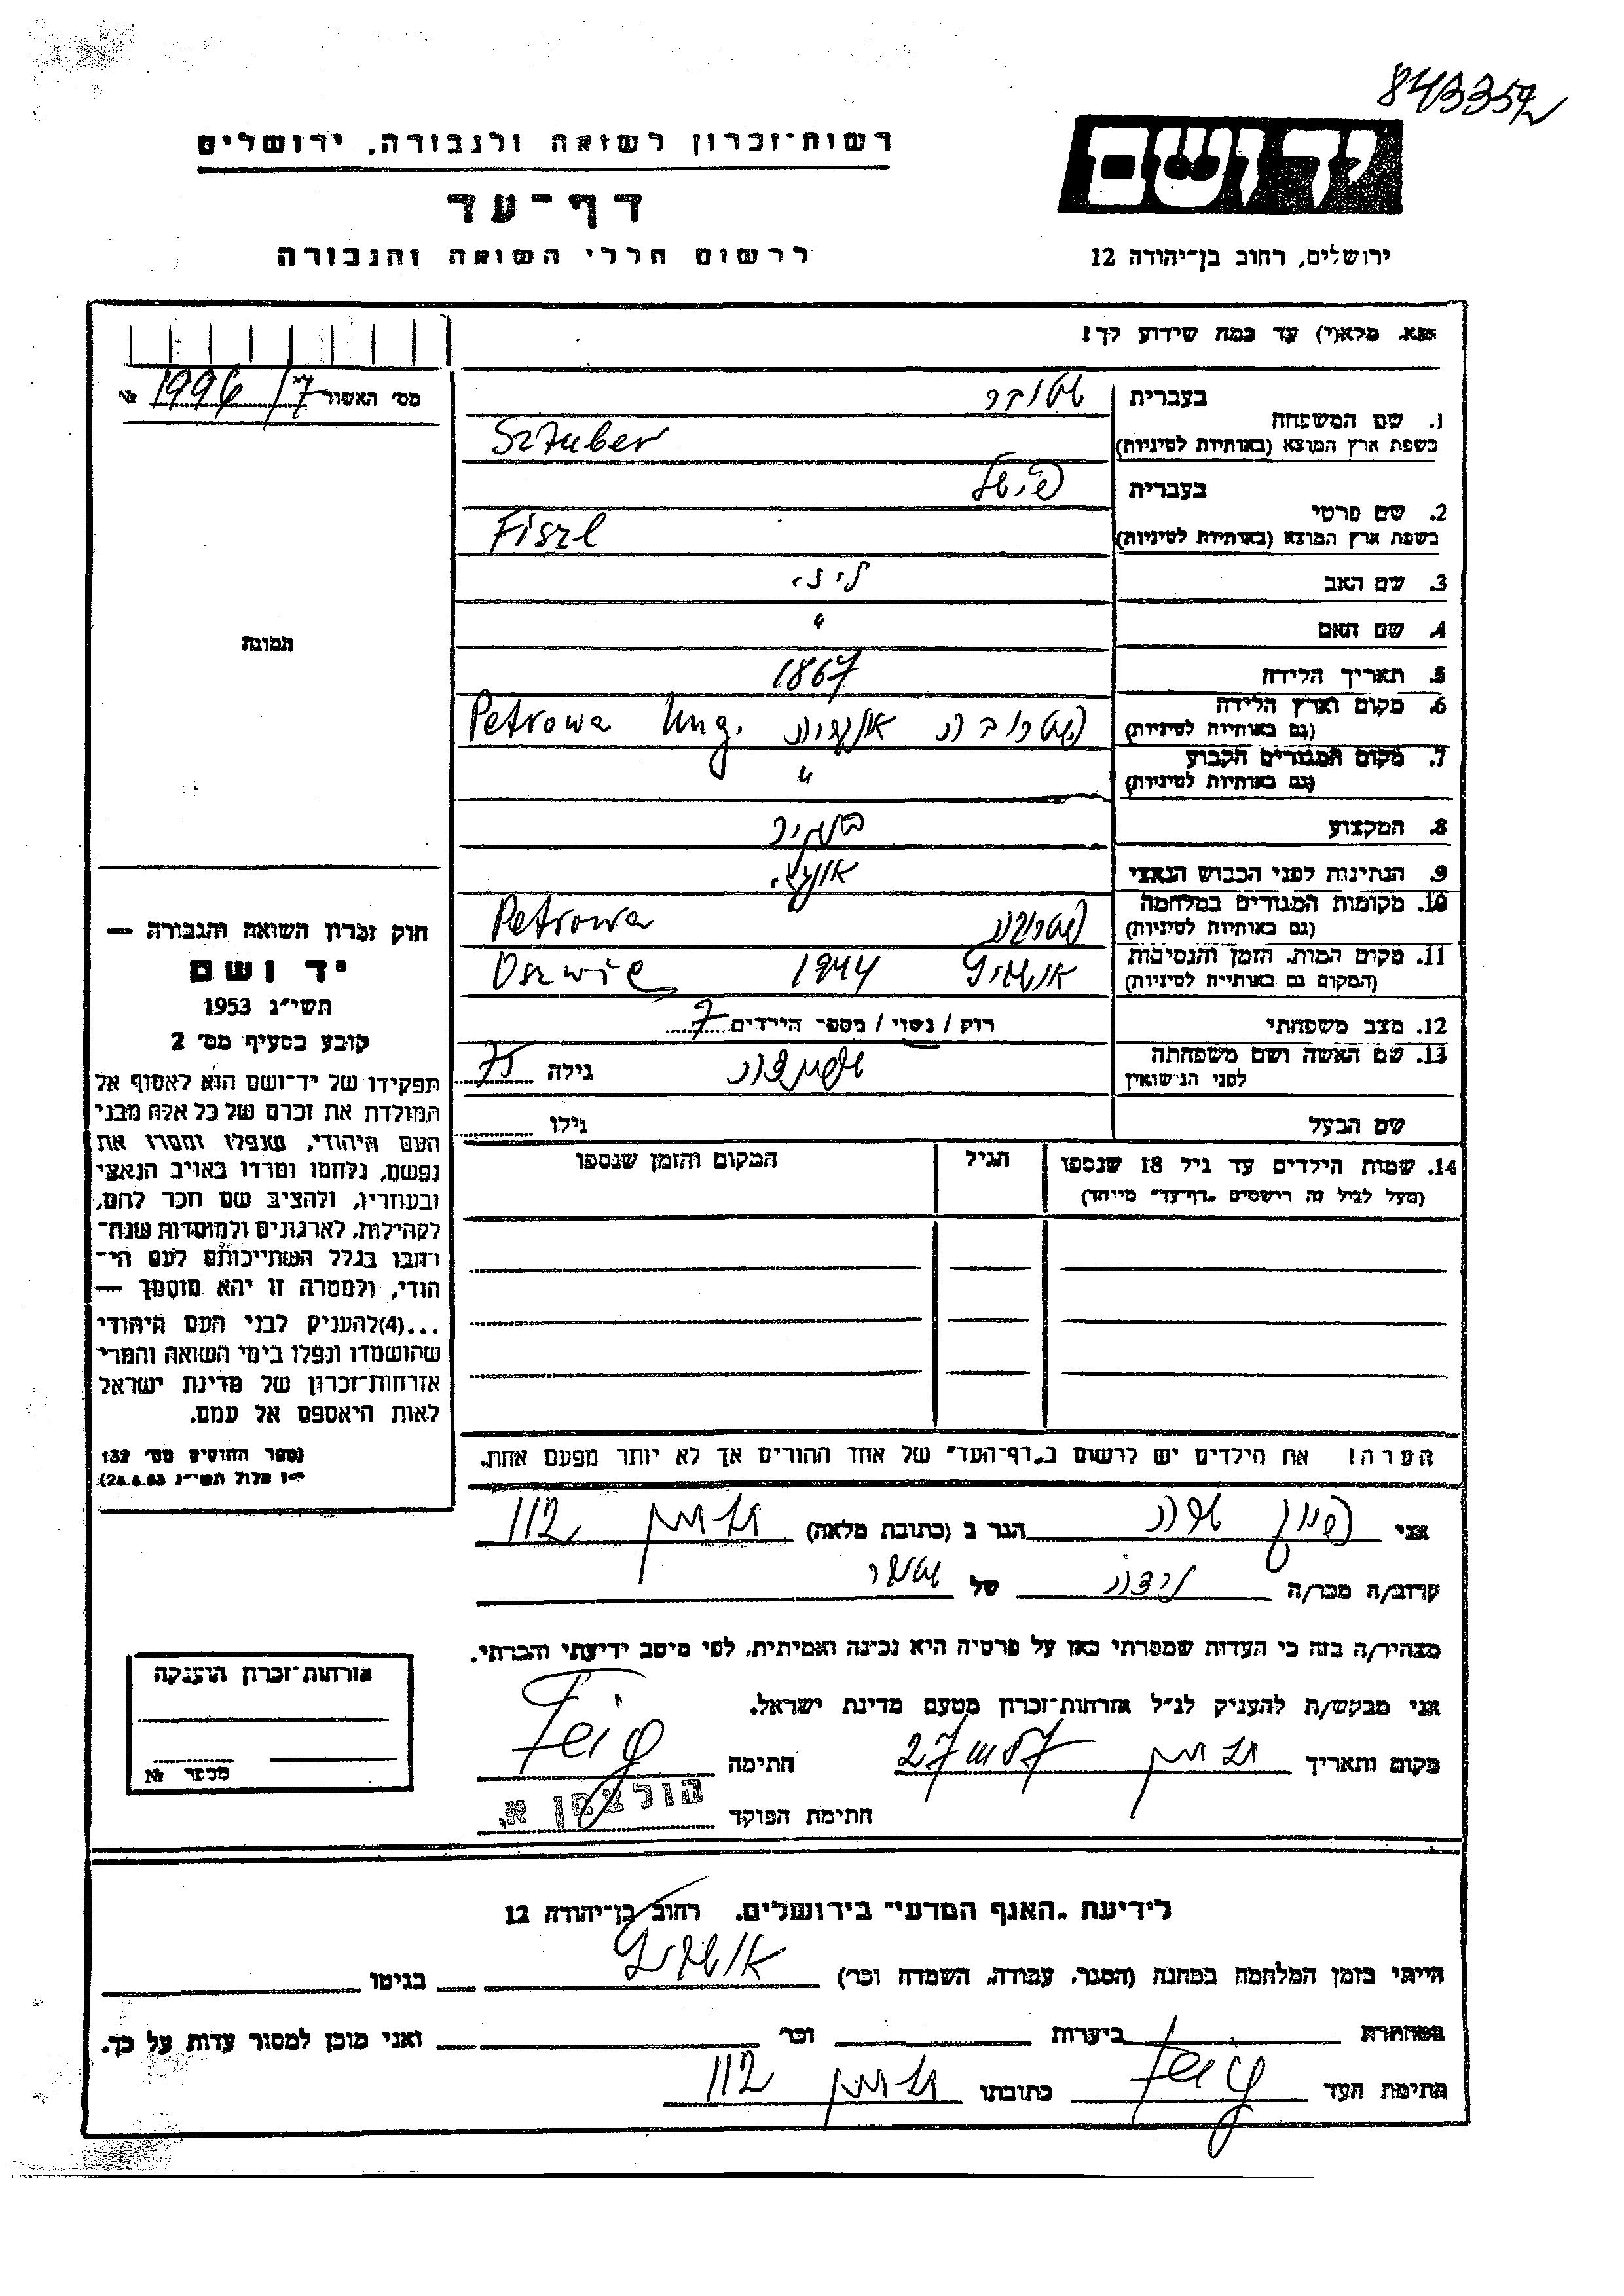 843357
יד ושם
רשות־זכרון לשואה ולגבורה, ירושלים
דף־עד
לרשום חללי השואה והגבורה
ירושלים, רחוב בן־יהודה 12
נא. מלא(י) עד כמה שידוע לך!
מס' האשור 1996/7 №
תמונה
1. שם המשפחה בעברית שטובר
בשפת ארץ המוצא (באותיות לטיניות) Sztuber
2. שם פרטי בעברית פישל
בשפת ארץ המוצא (באותיות לטיניות) Fiszl
3. שם האב ל.י.
4. שם האם "
5. תאריך הלידה 1867
6. מקום וארץ הלידה (גם באותיות לטיניות) Petrowa Ung.
7. מקום המגורים הקבוע (גם באותיות לטיניות) "
8. המקצוע
9. הנתינות לפני הכבוש הנאצי
10. מקומות המגורים במלחמה (גם באותיות לטיניות) Petrowa
11. מקום המות, הזמן והנסיבות (המקום גם באותיות לטיניות) 1944 Oszwic
12. מצב משפחתי רוק / נשוי / מספר הילדים 7
13. שם האשה ושם משפחתה לפני הנישואין גילה 75
שם הבעל גילו
14. שמות הילדים עד גיל 18 שנספו הגיל המקום והזמן שנספו
(מעל לגיל זה רושמים „דף־עד" מיוחד)
הערה! את הילדים יש לרשום ב„דף־העד" של אחד ההורים אך לא יותר מפעם אחת.
חוק זכרון השואה והגבורה —
יד ושם
תשי״ג 1953
קובע בסעיף מס' 2
תפקידו של יד־ושם הוא לאסוף אל
המולדת את זכרם של כל אלה מבני
העם היהודי, שנפלו ומסרו את
נפשם, נלחמו ומרדו באויב הנאצי
ובעוזריו, ולהציב שם וזכר להם,
לקהילות, לארגונים ולמוסדות שנח־
רבו בגלל השתייכותם לעם הי־
הודי, ולמטרה זו יהא מוסמך —
...(4) להעניק לבני העם היהודי
שהושמדו ונפלו בימי השואה והמרי
אזרחות־זכרון של מדינת ישראל
לאות היאספם אל עמם.
(ספר החוקים מס' 132
י״ז אלול תשי״ג 28.8.53)
אני הגר ב (כתובת מלאה) 112
קרוב/ה מכר/ה של
מצהיר/ה בזה כי העדות שמסרתי כאן על פרטיה היא נכונה ואמיתית, לפי מיטב ידיעתי והכרתי.
אני מבקש/ת להעניק לנ״ל אזרחות־זכרון מטעם מדינת ישראל.
מקום ותאריך 27 חתימה Feig
חתימת הפוקד הולצמן א.
אזרחות־זכרון הוענקה
מספר №
לידיעת „האגף המדעי" בירושלים, רחוב בן־יהודה 12
הייתי בזמן המלחמה במחנה (הסגר, עבודה, השמדה וכו') בגיטו
במחתרת ביערות וכו' ואני מוכן למסור עדות על כך.
חתימת העד Feig כתובתו 112